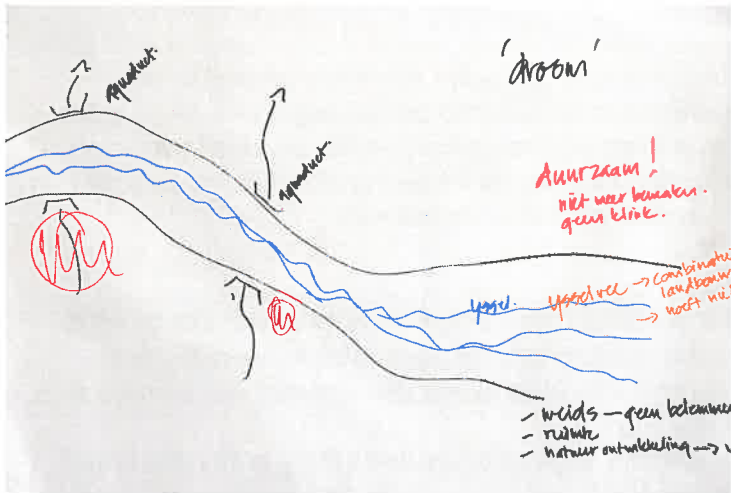 'droom'
aquaduct.
aquaduct.
duurzaam!
niet meer bemalen.
geen klink.
yssel. ysselvee → combinatie
landbouw
→ hoeft
- weids — geen belemmer
- ruimte
- natuurontwikkeling →